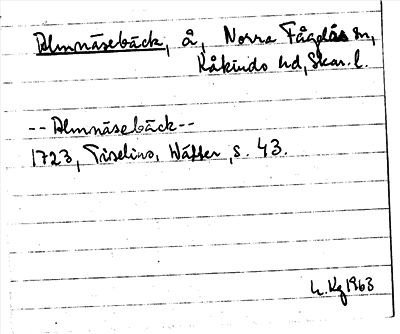 Almnäsebäck, å, Norra Fågelås sn,
Kåkinds hd, Skar. l.
-- Almnäsebäck --
1723, Tiselius, Wätter, s. 43.
h. Kg 1963